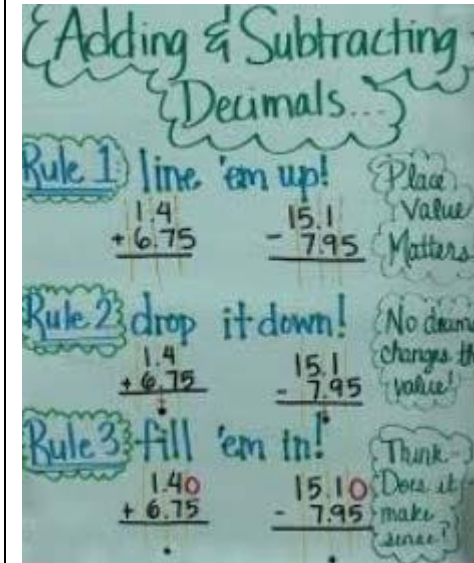 Adding & Subtracting
Decimals...
Rule 1 line 'em up!
1.4
+ 6.75
15.1
- 7.95
Place
Value
Matters
Rule 2 drop it down!
1.4
+ 6.75
.
15.1
- 7.95
.
No
changes
value!
Rule 3 fill 'em in!
1.40
+ 6.75
.
15.10
- 7.95
.
Think-
Does it
make
sense?